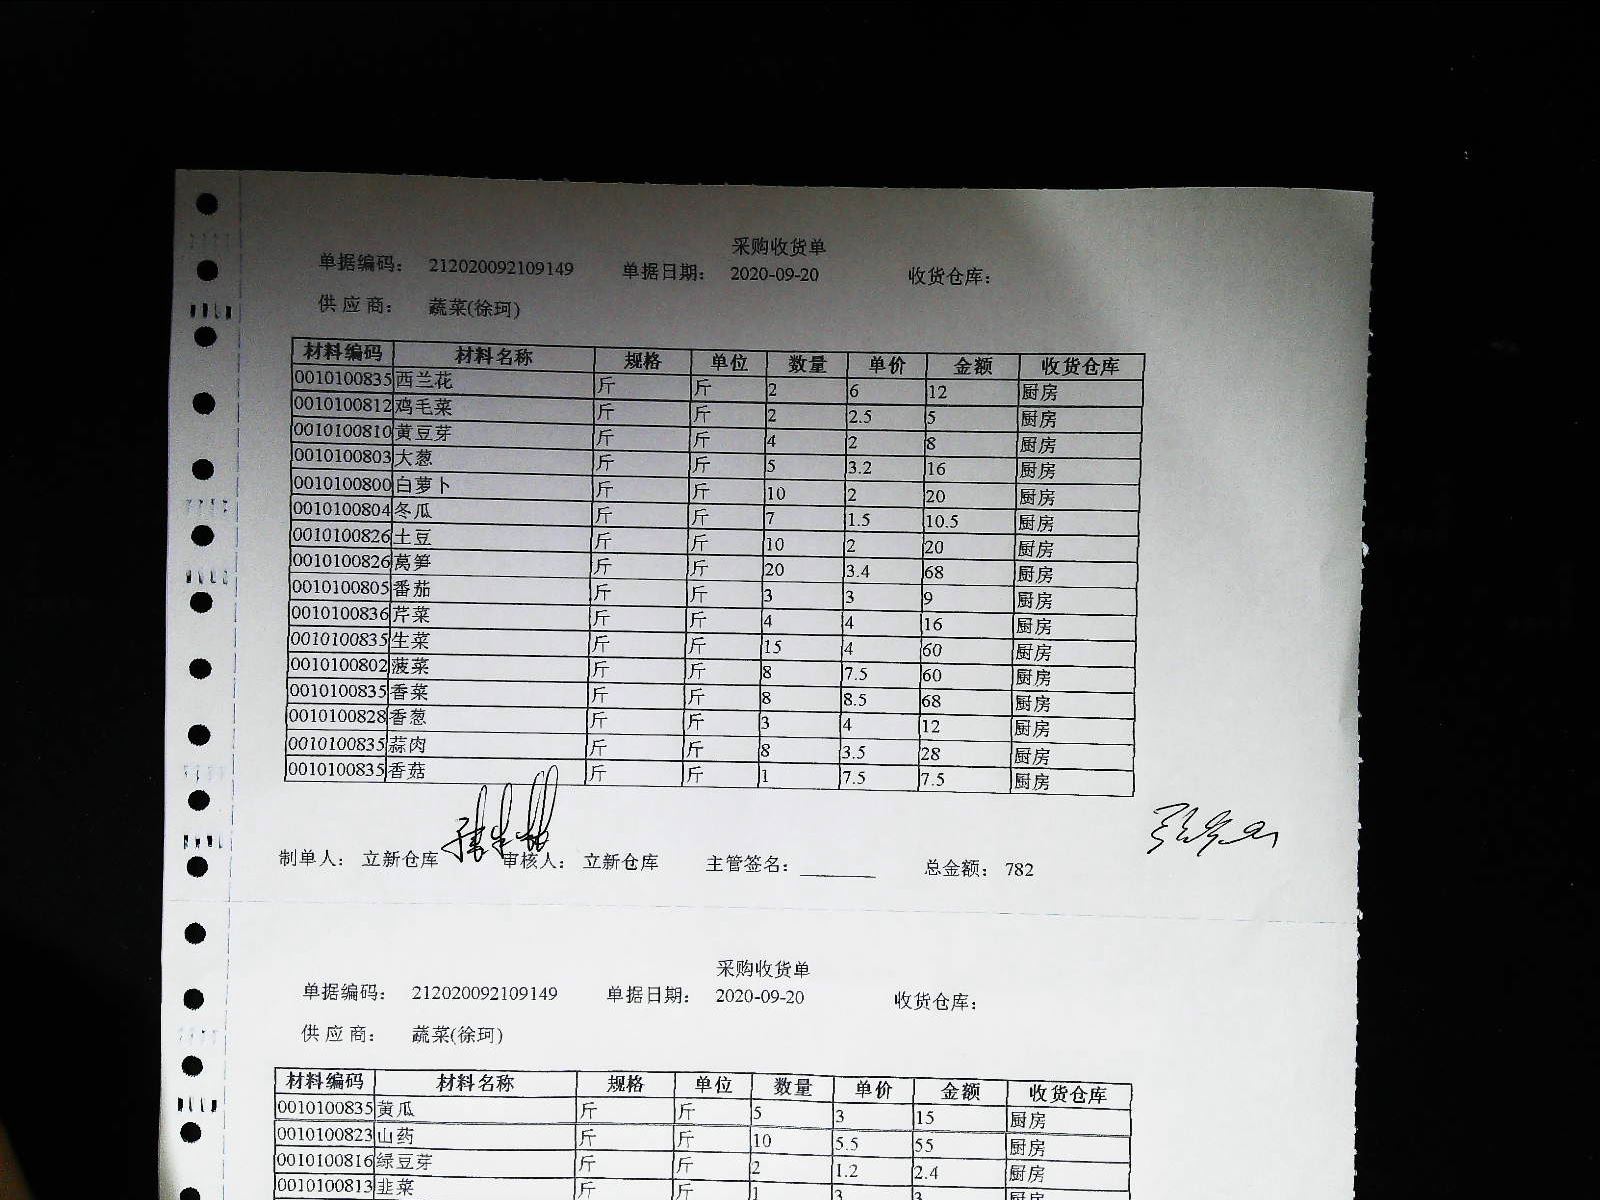 采购收货单
单据编码： 212020092109149 单据日期： 2020-09-20 收货仓库：
供应商： 蔬菜(徐珂)
材料编码 材料名称 规格 单位 数量 单价 金额 收货仓库
0010100835 西兰花 斤 斤 2 6 12 厨房
0010100812 鸡毛菜 斤 斤 2 2.5 5 厨房
0010100810 黄豆芽 斤 斤 4 2 8 厨房
0010100803 大葱 斤 斤 5 3.2 16 厨房
0010100800 白萝卜 斤 斤 10 2 20 厨房
0010100804 冬瓜 斤 斤 7 1.5 10.5 厨房
0010100826 土豆 斤 斤 10 2 20 厨房
0010100826 莴笋 斤 斤 20 3.4 68 厨房
0010100805 番茄 斤 斤 3 3 9 厨房
0010100836 芹菜 斤 斤 4 4 16 厨房
0010100835 生菜 斤 斤 15 4 60 厨房
0010100802 菠菜 斤 斤 8 7.5 60 厨房
0010100835 香菜 斤 斤 8 8.5 68 厨房
0010100828 香葱 斤 斤 3 4 12 厨房
0010100835 蒜肉 斤 斤 8 3.5 28 厨房
0010100835 香菇 斤 斤 1 7.5 7.5 厨房
制单人： 立新仓库 审核人： 立新仓库 主管签名： 总金额： 782
采购收货单
单据编码： 212020092109149 单据日期： 2020-09-20 收货仓库：
供应商： 蔬菜(徐珂)
材料编码 材料名称 规格 单位 数量 单价 金额 收货仓库
0010100835 黄瓜 斤 斤 5 3 15 厨房
0010100823 山药 斤 斤 10 5.5 55 厨房
0010100816 绿豆芽 斤 斤 2 1.2 2.4 厨房
0010100813 韭菜 斤 斤 1 3 3 厨房